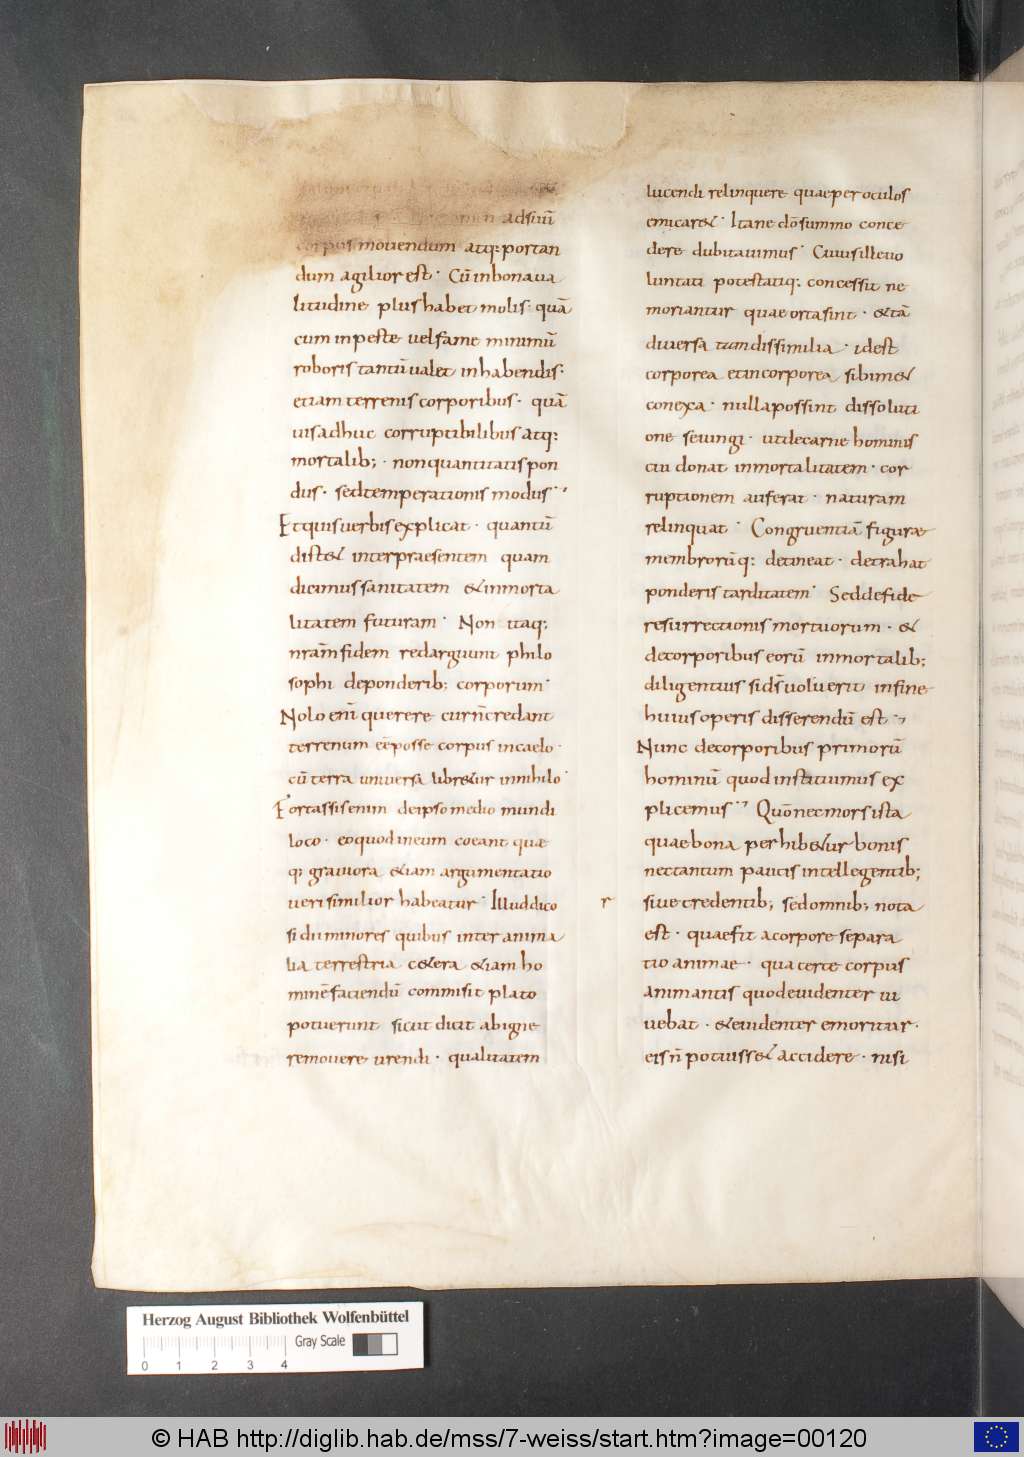 adsuũ
corpus mouendum atq: portan
dum agilior est · Cũ in bona ua
litudine plus habet molis · quã
cum in peste uel fame minimũ
roboris tantũ ualet in habendis ·
etiam terrenis corporibus · quã
uis adhuc corruptibilibus atq:
mortalib; · non quantitatis pon
dus · sed temperationis modus
Et quis uerbis explicat · quantũ
distet inter praesentem quam
dicimus sanitatem et inmorta
litatem futuram · Non itaq:
nram̃ fidem redarguunt philo
sophi de ponderib; corporum ·
Nolo enĩ querere cur ñ credant
terrenum eẽ posse corpus in caelo ·
cũ terra uniuersa libretur in nihilo ·
Fortassis enim de ipso medio mundi
loco · eo quod in eum coeant quae
q: grauiora etiam argumentatio
ueri similior habeatur · Illud dico
si dii minores quibus inter anima
lia terrestria cetera etiam ho
minẽ faciendũ commisit plato
potuerunt sicut dicit ab igne
remouere urendi · qualitatem
lucendi relinquere quae per oculos
emicaret · Itane dõ summo conce
dere dubitauimus · Cuius ille uo
luntati potestatiq: concessit ne
moriantur quae orta sint · et tã
diuersa tam dissimilia · id est
corporea et incorporea sibimet
conexa · nulla possint dissoluti
one seiungi · ut de carne hominis
cui donat inmortalitatem · cor
ruptionem auferat · naturam
relinquat · Congruentiã figurae
membrorũq: detineat · detrahat
ponderis tarditatem · Sed de fide
resurrectionis mortuorum · et
de corporibus eorũ inmortalib;
diligentius si ds̃ uoluerit in fine
huius operis disserendũ est
Nunc de corporibus primorũ
hominũ quod instituimus ex
plicemus Quõ nec mors ista
quae bona perhibetur bonis
nec tantum paucis intellegentib;
r siue credentib; sed omnib; nota
est · quae fit a corpore separa
tio animae · qua certe corpus
animantis quod euidenter ui
uebat · et euidenter emoritur ·
eis ñ potuisset accidere · nisi
Herzog August Bibliothek Wolfenbüttel
Gray Scale
0 1 2 3 4
© HAB http://diglib.hab.de/mss/7-weiss/start.htm?image=00120